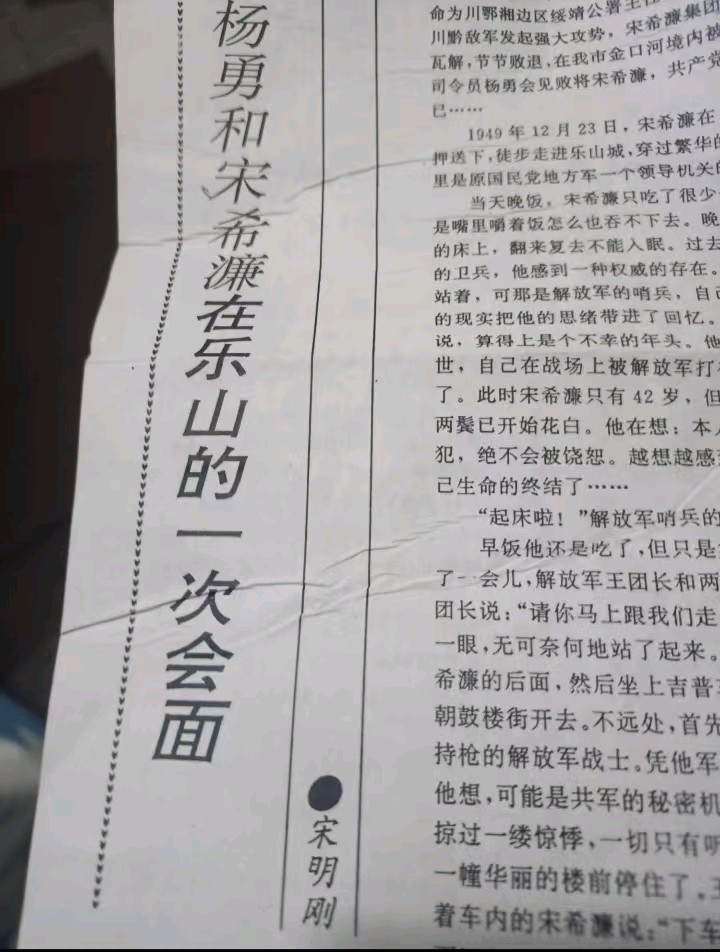 杨勇和宋希濂在乐山的一次会面
●宋明刚
命为川鄂湘边区绥靖公署主任
川黔敌军发起强大攻势，宋希濂集团
瓦解，节节败退，在我市金口河境内被
司令员杨勇会见败将宋希濂，共产党
已……
1949年12月23日，宋希濂在
押送下，徒步走进乐山城，穿过繁华的
里是原国民党地方军一个领导机关的
当天晚饭，宋希濂只吃了很少
是嘴里嚼着饭怎么也吞不下去。晚
的床上，翻来复去不能入眠。过去
的卫兵，他感到一种权威的存在。
站着，可那是解放军的哨兵，自己
的现实把他的思绪带进了回忆。
说，算得上是个不幸的年头。他
世，自己在战场上被解放军打
了。此时宋希濂只有42岁，但
两鬓已开始花白。他在想：本人
犯，绝不会被饶恕。越想越感
己生命的终结了……
“起床啦！”解放军哨兵的
早饭他还是吃了，但只是
了一会儿，解放军王团长和两
团长说：“请你马上跟我们走
一眼，无可奈何地站了起来。
希濂的后面，然后坐上吉普
朝鼓楼街开去。不远处，首先
持枪的解放军战士。凭他军
他想，可能是共军的秘密机
掠过一缕惊悸，一切只有听
一幢华丽的楼前停住了，王
着车内的宋希濂说：“下车